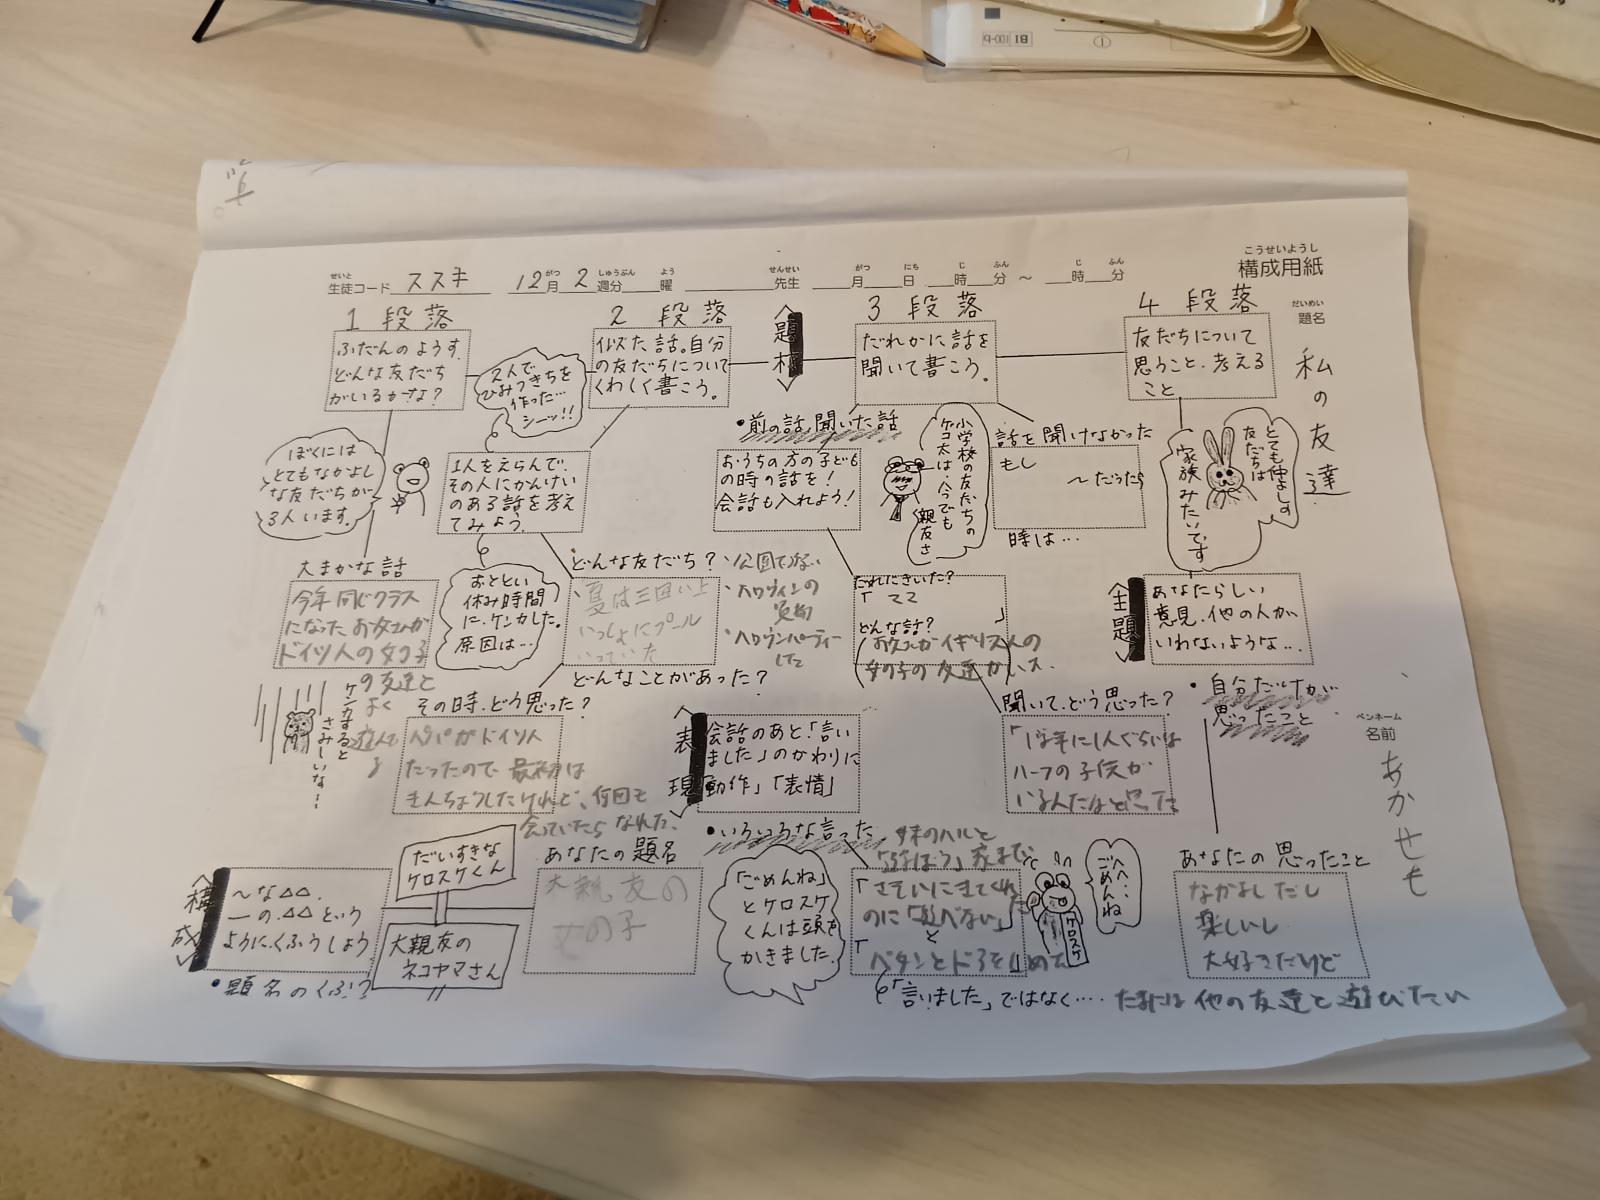 こうせいようし
構成用紙
せいと
生徒コード ススキ 12月 2週分 曜
がつ しゅうぶん よう
せんせい
先生
がつ にち じ ふん じ ふん
月 日 時 分 ～ 時 分
だいめい
題名
私の友達
ペンネーム
名前
あかせも
1 段落
ふだんのようす。
どんな友だち
がいるかな？
ぼくには
とてもなかよし
な友だちが
3人います。
大まかな話
今年同じクラス
になったお父さんが
ドイツ人の女の子
の友達と
よく
遊んで
る
2 段落
似た話。自分
の友だちについて
くわしく書こう。
2人で
ひみつきちを
作った…
シーッ!!
1人をえらんで、
その人にかんけい
のある話を考え
てみよう。
おととい
休み時間
に、ケンカした。
原因は…
どんな友だち？
夏は三回以上
いっしょにプール
いっていた
・公園で
・ハロウィンの
・ハロウンパーティー
して
どんなことがあった？
その時、どう思った？
パパがドイツ人
だったので最初は
きんちょうしたけれど、何回も
会っていたらなれた。
ケンカすると
さみしいな！
〈題材〉
3 段落
だれかに話を
聞いて書こう。
・前の話、聞いた話
おうちの方の子ども
の時の話を！
会話も入れよう！
小学校の友だちの
ケコ太は、今でも
親友さ
話を聞けなかった
もし
～だったら
時は…
だれにきいた？
「ママ
」
どんな話？
お父さんがイギリス人の
女の子の友達がいた。
聞いて、どう思った？
「1学年に1人ぐらいは
ハーフの子供が
いるんだなと思った
4 段落
友だちについて
思うこと、考える
こと
とても仲よしの
友だちは
家族みたいです
〈主題〉
あなたらしい
意見、他の人が
いわないような…
・自分だけが
思ったこと
あなたの思ったこと
なかよしだし
楽しいし
大好きだけど
たまには他の友達と遊びたい
〈表現〉
会話のあと「言い
ました」のかわりに
「動作」「表情」
・いろいろな言った
「ごめんね」
とケロスケ
くんは頭を
かきました。
妹のハルと
「遊ぼう」家まで
「さそいにきてくれた
のに「遊べない」
と
「バタンとドアをしめて
「言いました」ではなく…
へへ…
ごめんね
ケロスケ
〈構成〉
～な△△。
―の、△△という
ように、くふうしよう
・題名のくふう
だいすきな
ケロスケくん
大親友の
ネコヤマさん
あなたの題名
大親友の
女の子